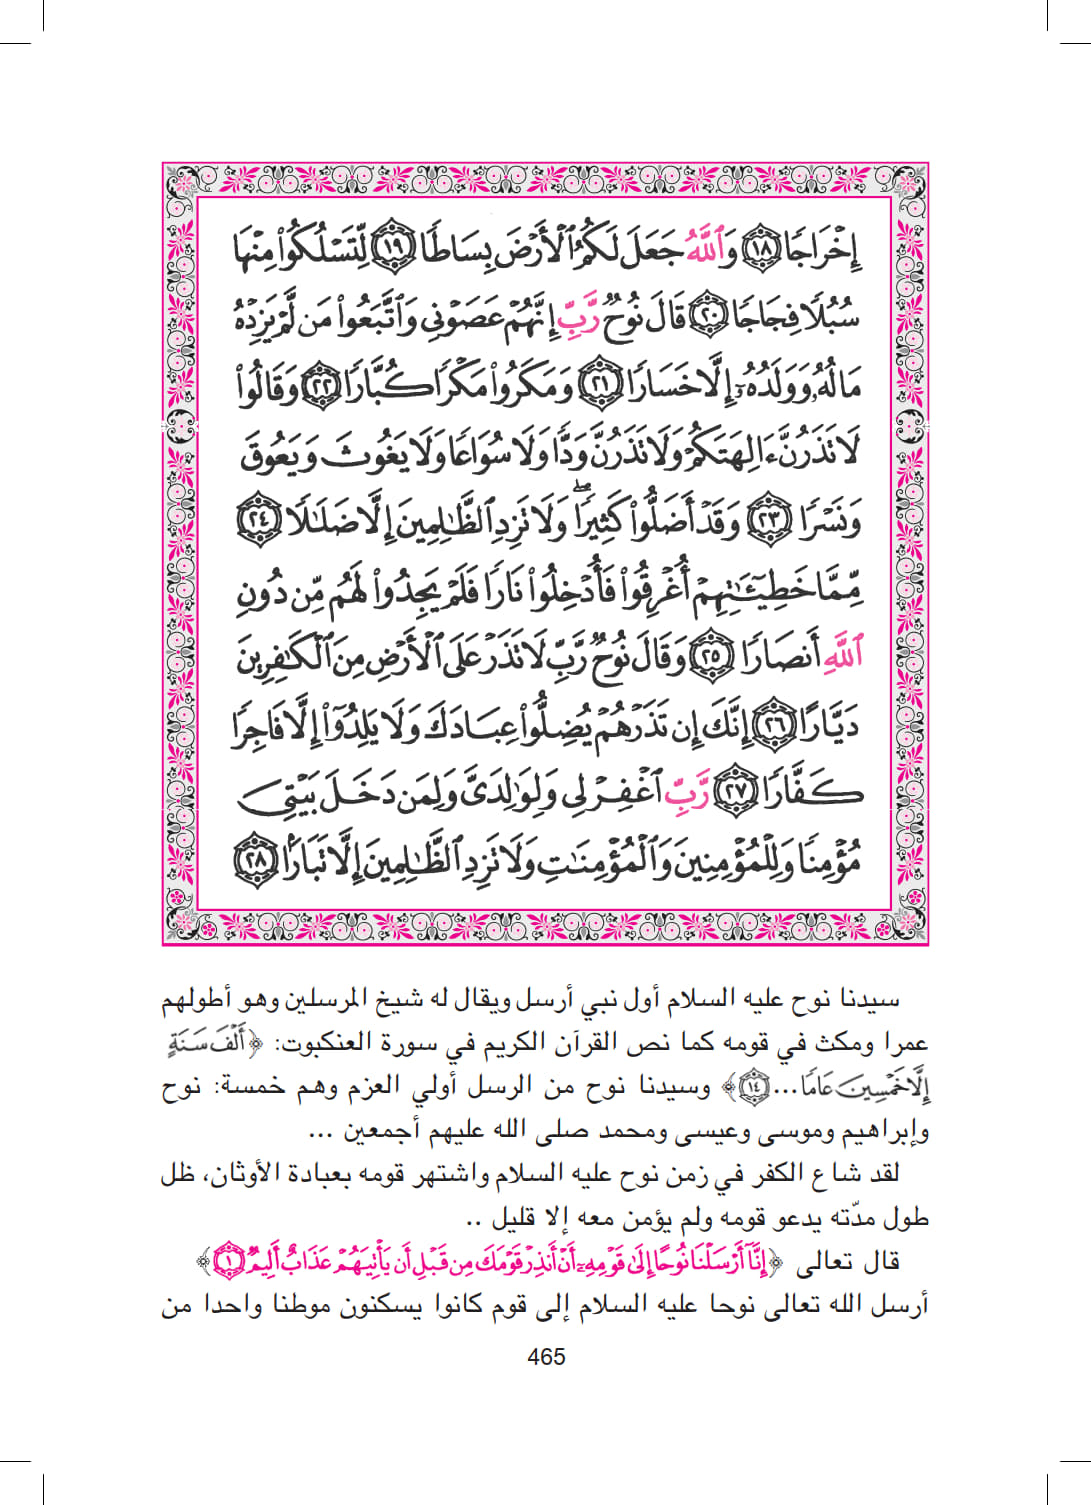 إِخْرَاجًا ﴿١٨﴾ وَٱللَّهُ جَعَلَ لَكُمُ ٱلْأَرْضَ بِسَاطًا ﴿١٩﴾ لِّتَسْلُكُوا۟ مِنْهَا
سُبُلًا فِجَاجًا ﴿٢٠﴾ قَالَ نُوحٌ رَّبِّ إِنَّهُمْ عَصَوْنِى وَٱتَّبَعُوا۟ مَن لَّمْ يَزِدْهُ
مَالُهُۥ وَوَلَدُهُۥٓ إِلَّا خَسَارًا ﴿٢١﴾ وَمَكَرُوا۟ مَكْرًا كُبَّارًا ﴿٢٢﴾ وَقَالُوا۟
لَا تَذَرُنَّ ءَالِهَتَكُمْ وَلَا تَذَرُنَّ وَدًّا وَلَا سُوَاعًا وَلَا يَغُوثَ وَيَعُوقَ
وَنَسْرًا ﴿٢٣﴾ وَقَدْ أَضَلُّوا۟ كَثِيرًا ۖ وَلَا تَزِدِ ٱلظَّـٰلِمِينَ إِلَّا ضَلَـٰلًا ﴿٢٤﴾
مِّمَّا خَطِيٓـَٔـٰتِهِمْ أُغْرِقُوا۟ فَأُدْخِلُوا۟ نَارًا فَلَمْ يَجِدُوا۟ لَهُم مِّن دُونِ
ٱللَّهِ أَنصَارًا ﴿٢٥﴾ وَقَالَ نُوحٌ رَّبِّ لَا تَذَرْ عَلَى ٱلْأَرْضِ مِنَ ٱلْكَـٰفِرِينَ
دَيَّارًا ﴿٢٦﴾ إِنَّكَ إِن تَذَرْهُمْ يُضِلُّوا۟ عِبَادَكَ وَلَا يَلِدُوٓا۟ إِلَّا فَاجِرًا
كَفَّارًا ﴿٢٧﴾ رَّبِّ ٱغْفِرْ لِى وَلِوَٰلِدَىَّ وَلِمَن دَخَلَ بَيْتِىَ
مُؤْمِنًا وَلِلْمُؤْمِنِينَ وَٱلْمُؤْمِنَـٰتِ وَلَا تَزِدِ ٱلظَّـٰلِمِينَ إِلَّا تَبَارًۢا ﴿٢٨﴾
سيدنا نوح عليه السلام أول نبي أرسل ويقال له شيخ المرسلين وهو أطولهم
عمرا ومكث في قومه كما نص القرآن الكريم في سورة العنكبوت: ﴿أَلْفَ سَنَةٍ
إِلَّا خَمْسِينَ عَامًا... ﴿١٤﴾﴾ وسيدنا نوح من الرسل أولي العزم وهم خمسة: نوح
وإبراهيم وموسى وعيسى ومحمد صلى الله عليهم أجمعين ...
لقد شاع الكفر في زمن نوح عليه السلام واشتهر قومه بعبادة الأوثان، ظل
طول مدّته يدعو قومه ولم يؤمن معه إلا قليل ..
قال تعالى ﴿إِنَّآ أَرْسَلْنَا نُوحًا إِلَىٰ قَوْمِهِۦٓ أَنْ أَنذِرْ قَوْمَكَ مِن قَبْلِ أَن يَأْتِيَهُمْ عَذَابٌ أَلِيمٌ ﴿١﴾﴾
أرسل الله تعالى نوحا عليه السلام إلى قوم كانوا يسكنون موطنا واحدا من
465